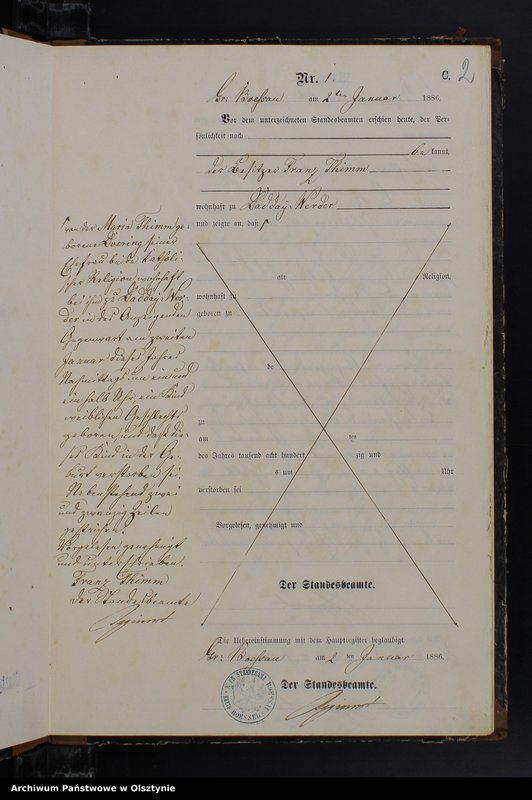 Nr. 1.
C. 2
Gr. Boessau am 2ten Januar 1886.
Vor dem unterzeichneten Standesbeamten erschien heute, der Per-
sönlichkeit nach
be kannt,
der Besitzer Franz Thimm
wohnhaft zu Dadday-Werder
und zeigte an, daß
von der Maria Thimm ge-
borene Doering seiner
Ehefrau beide katholi-
scher Religion wohnhaft
bei ihm zu Dadday-Wer-
der in des Anzeigenden
Gegenwart am zweiten
Januar dieses Jahres
Nachmittags um ein und
ein halb Uhr, ein Kind
weiblichen Geschlechts
geboren, und daß die-
ses Kind in der Ge-
burt verstorben sei.
Nebenstehend zwei
und zwanzig Zeilen
gestrichen.
Vorgelesen genehmigt
und unterschrieben.
Franz Thimm
Der Standesbeamte
alt Religion,
wohnhaft zu
geboren zu
de
zu
am ten
des Jahres tausend acht hundert zig und
s um Uhr
verstorben sei
Vorgelesen, genehmigt und
Der Standesbeamte.
Die Uebereinstimmung mit dem Hauptregister beglaubigt.
Gr: Boessau am 2 ten Januar 1886.
Der Standesbeamte.
Archiwum Państwowe w Olsztynie